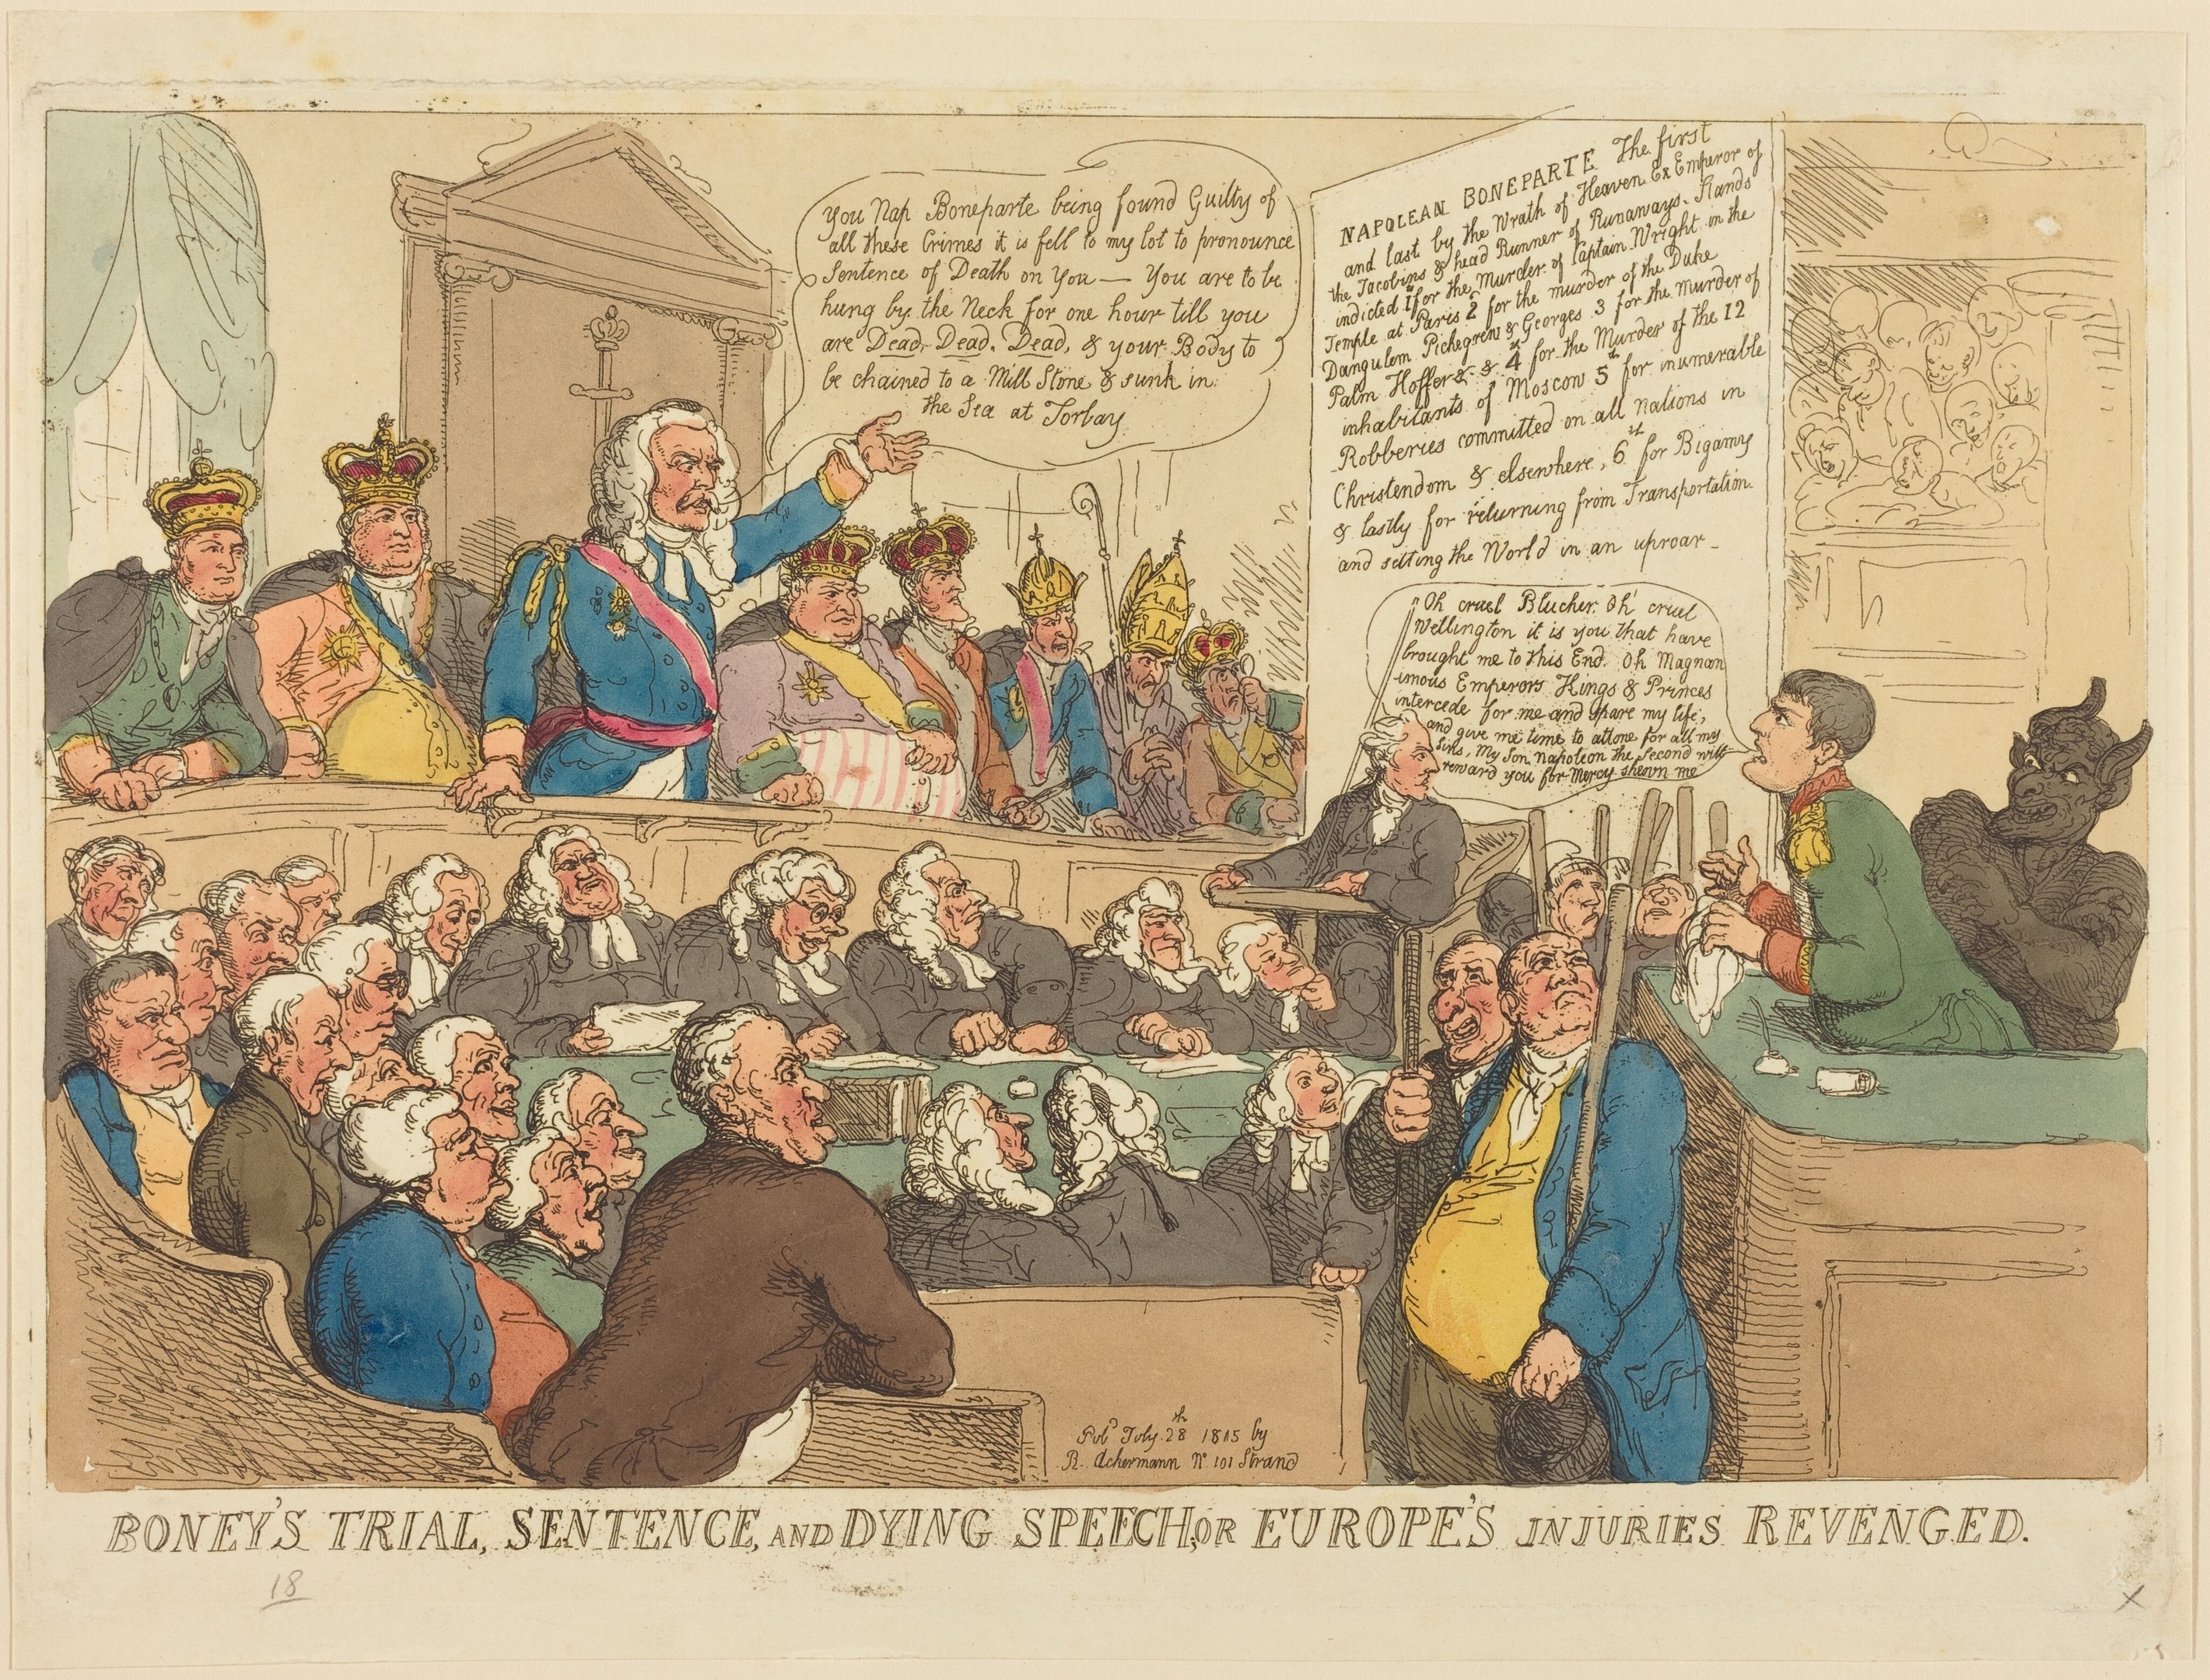 You Nap Boneparte being found Guilty of
all these Crimes it is fell to my lot to pronounce
Sentence of Death on You — You are to be
hung by the Neck for one hour till you
are Dead, Dead, Dead, & your Body to
be chained to a Mill Stone & sunk in
the Sea at Torbay
NAPOLEAN BONEPARTE The first
and last by the Wrath of Heaven Ex Emperor of
the Jacobins & head Runner of Runaways. Stands
indicted 1st for the Murder of Captain Wright in the
Temple at Paris 2 for the murder of the Duke
Dangulem Pichegrew & Georges 3 for the Murder of
Palm Hoffer &. &. 4 for the Murder of the 12
inhabitants of Moscow 5th for inumerable
Robberies committed on all Nations in
Christendom & elsewhere, 6th for Bigamy
& lastly for returning from Transportation.
and setting the World in an uproar —
Oh cruel Blucher. Oh! cruel
Wellington it is you that have
brought me to this End. Oh Magnan
imous Emperors Kings & Princes
intercede for me and spare my life,
and give me time to attone for all my
Sins, My Son Napoleon the Second will
reward you for Mercy shewn me
Pubd July 28th 1815 by
R. Ackermann No 101 Strand
BONEY'S TRIAL, SENTENCE, AND DYING SPEECH, OR EUROPE'S INJURIES REVENGED.
18
x